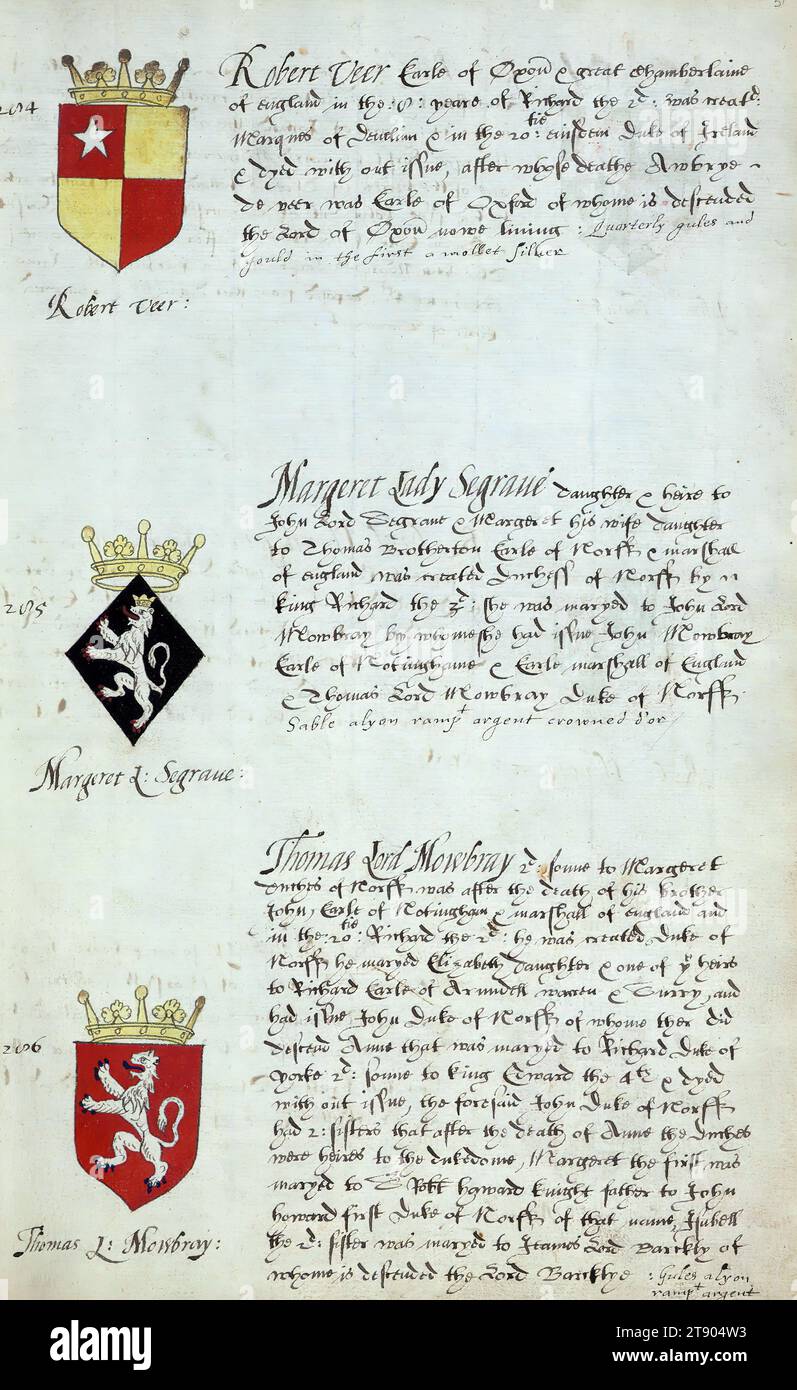 204
Robert Veer Earle of Oxoñ & great Chamberlaine
of England in the :8: yeare of Richard the 2d: was creatd:
Marques of Develinn & in the 20:tie eiusdem Duke of Ireland
& dyed with out issue, after whose deathe Awbrye
de veer was Earle of Oxford of whome is descended
the Lord of Oxoñ nowe living : Quarterly gules and
gould in the first a mollet silver
Robert Veer:
Margeret Lady Segraue daughter & heire to
John Lord Segraue & Margeret his wife daughter
to Thomas Brotherton Earle of Norff & marshall
of England was created Duchess of Norff by
king Richard the 2d: she was maryed to John Lord
Mowbray by whome she had issue John Mowbray
Earle of Notinghame & Earle marshall of England
& Thomas Lord Mowbray Duke of Norff
Sable a lyon rampt argent crowned d'or
205
Margeret L: Segraue:
Thomas Lord Mowbray 2d: sonne to Margeret
Duches of Norff was after the death of his brother
John, Earle of Notingham & marshall of england and
in the :20:tie Richard the 2d: he was created Duke of
Norff he maryed Elizabeth daughter & one of ye heirs
to Richard Earle of Arundell warren & Surry, and
had issue John Duke of Norff of whome ther did
descend Anne that was maryed to Richard Duke of
yorke 2d: sonne to king Edward the 4th & dyed
with out issue, the foresaid John Duke of Norff
had 2: sisters that after the death of Anne the Duches
were heires to the dukedome, Margeret the first was
maryed to Sr Robt haward knight father to John
howard first Duke of Norff of that name, Isabell
the 2d: sister was maryed to Jeames Lord Barckly of
whome is descended the Lord Barcklye : Gules a lyon
rampt argent
206
Thomas L: Mowbray:
alamy
Image ID: 2T904W3
www.alamy.com